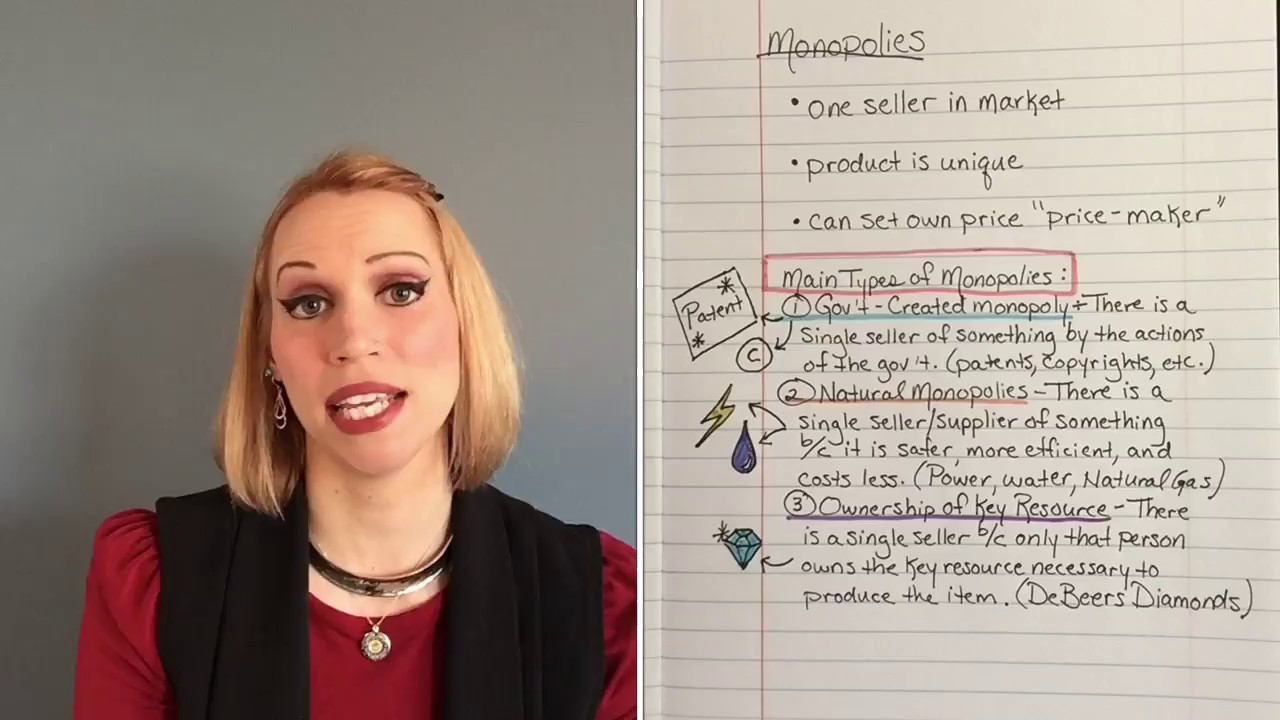 Monopolies
• one seller in market
• product is unique
• can set own price "price-maker"
Main Types of Monopolies:
Patent
① Gov't-Created monopoly - There is a
single seller of something by the actions
of the gov't. (patents, copyrights, etc.)
©
② Natural Monopolies - There is a
single seller/supplier of something
b/c it is safer, more efficient, and
costs less. (Power, water, Natural Gas)
③ Ownership of Key Resource - There
is a single seller b/c only that person
owns the key resource necessary to
produce the item. (DeBeers Diamonds)